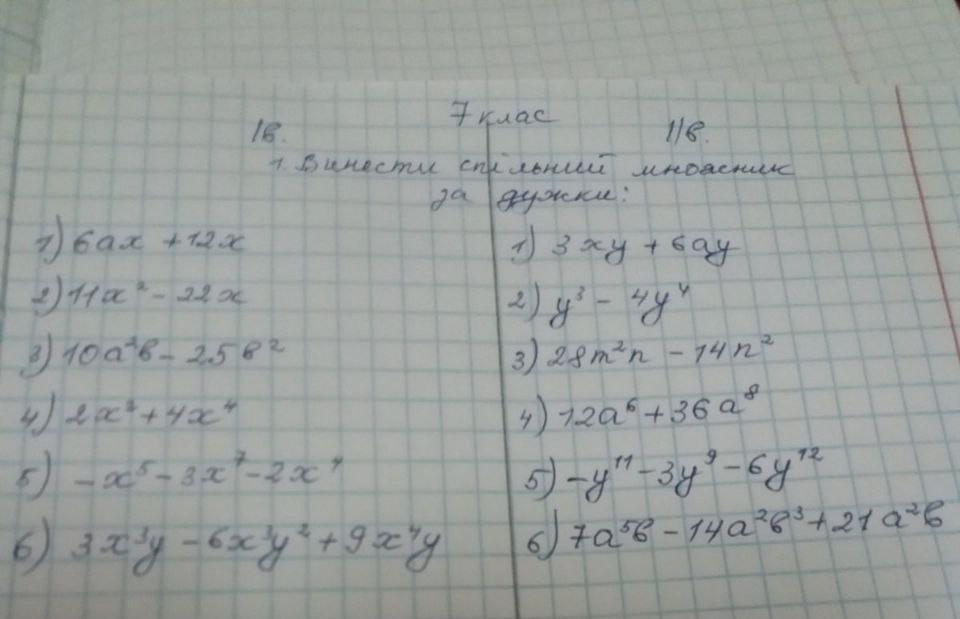 7 клас
Iв. IIв.
1. Винести спільний множник
за дужки:
1) 6ax + 12x
2) 11x² - 22x
3) 10a²b - 25b²
4) 2x² + 4x⁴
5) -x⁵ - 3x⁷ - 2x⁴
6) 3x³y - 6x³y² + 9x⁴y
1) 3xy + 6ay
2) y³ - 4y⁴
3) 28m²n - 14n²
4) 12a⁶ + 36a⁸
5) -y¹¹ - 3y⁹ - 6y¹²
6) 7a⁵b - 14a²b³ + 21a²b